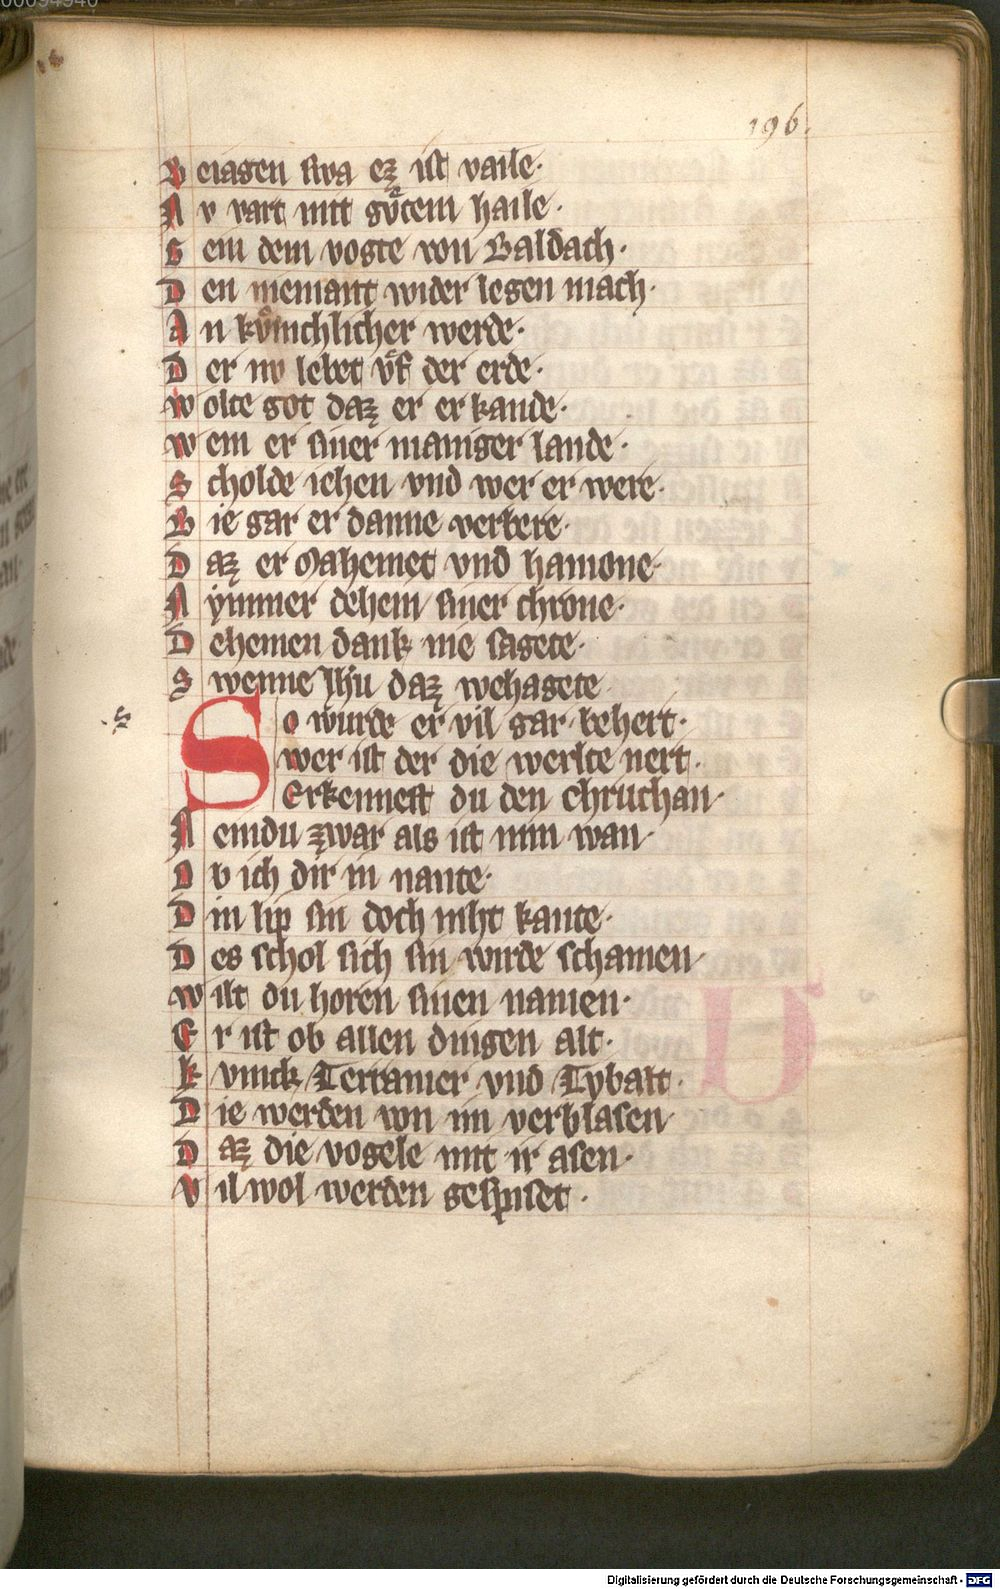 196.
B eiagen swa eʒ ist vaile·
N v vart mit gůtem haile·
G ein dem vogte von Baldach·
D en niemant wider legen mach·
A n kůnichlicher werde·
D er nv lebet vf der erde·
w olte got daʒ er erkande·
w em er siner maniger lande·
S cholde iehen vnd wer er were·
B ie gar er danne verbere·
D aʒ er Mahemet vnd hamone·
N ymmer dehein siner chrone·
D ehemen dank nie sagete·
S wenne Jhu daʒ wehagete
So wurde er vil gar behert·
swer ist der die werlte nert·
Erkennest du den chruchan·
N eindu zwar als ist min wan·
D v ich dir in nante·
D in lip sin doch niht kante·
D es schol sich sin wirde schamen
w ilt du horen sinen namen·
E r ist ob allen dingen alt·
k vnick Terramer vnd Tybalt·
D ie werden von im verblasen
D aʒ die vogele mit ir asen·
V il wol werden gespiset·
Digitalisierung gefördert durch die Deutsche Forschungsgemeinschaft - DFG